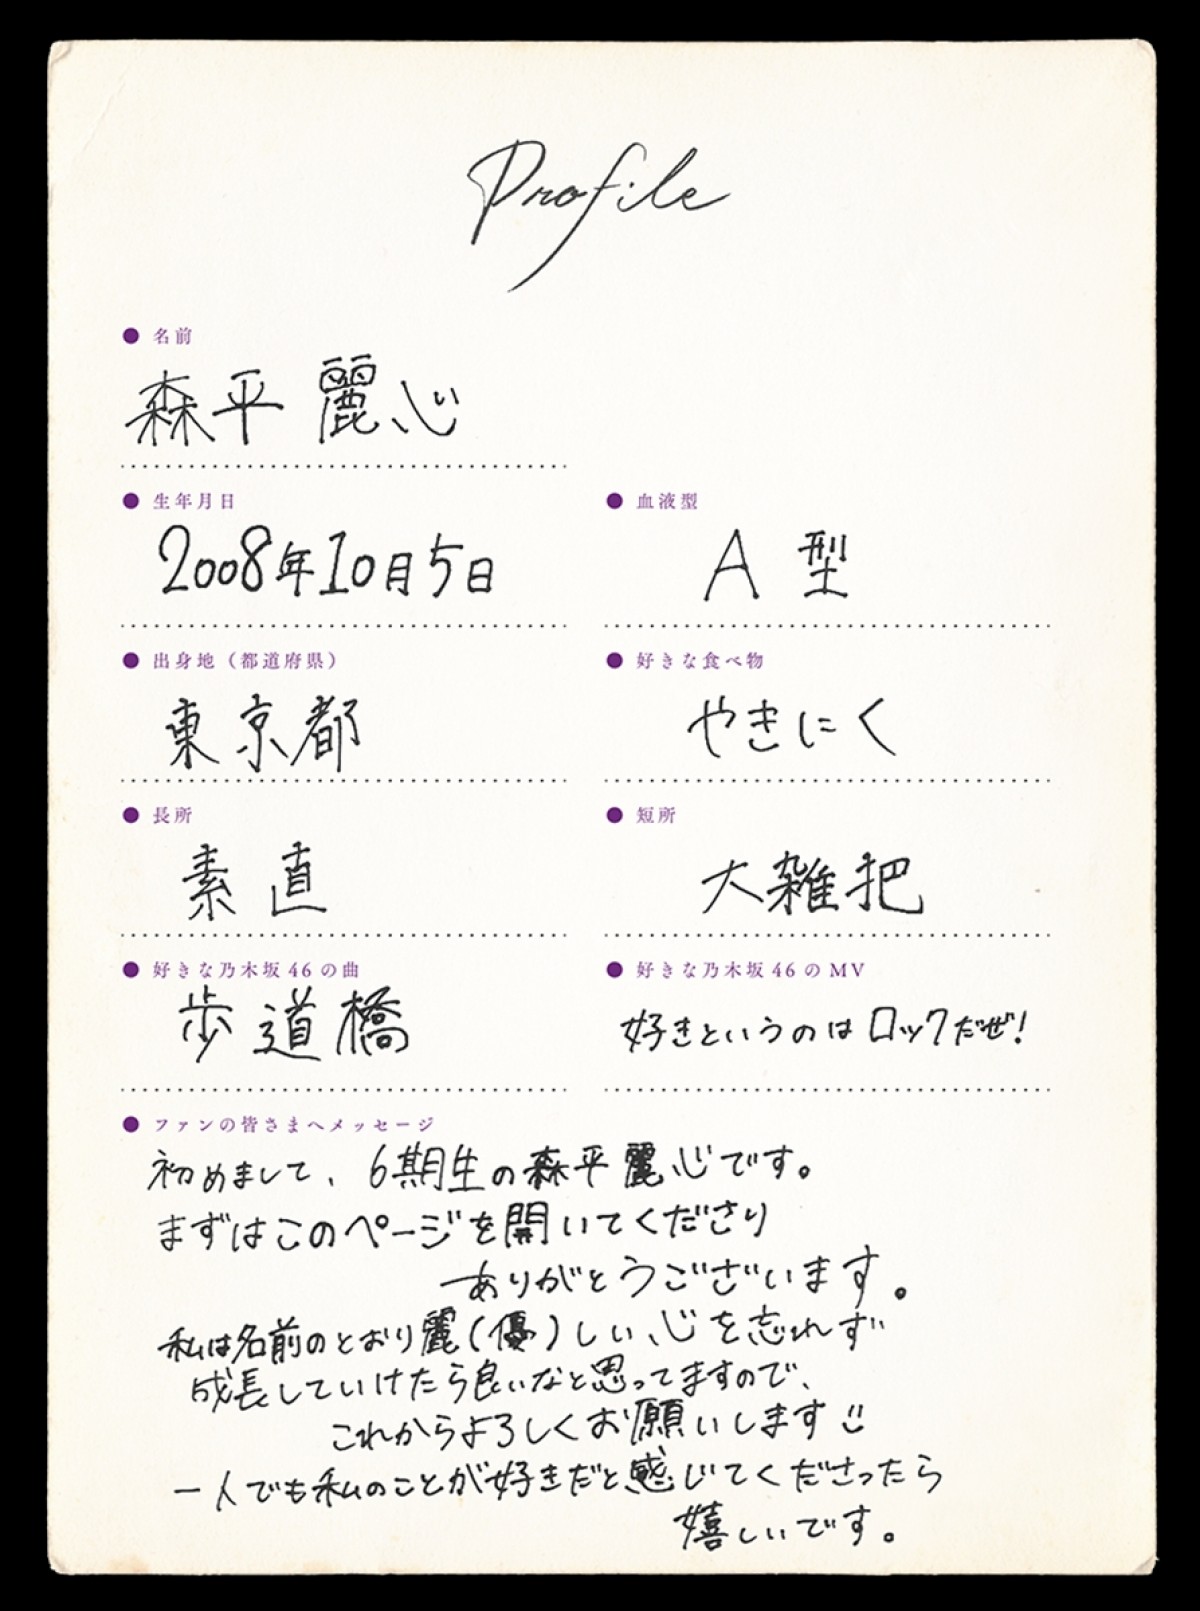 Profile
● 名前
森平 麗心
● 生年月日
2008年10月5日
● 血液型
A型
● 出身地（都道府県）
東京都
● 好きな食べ物
やきにく
● 長所
素直
● 短所
大雑把
● 好きな乃木坂46の曲
歩道橋
● 好きな乃木坂46のMV
好きというのはロックだぜ!
● ファンの皆さまへメッセージ
初めまして、6期生の森平麗心です。
まずはこのページを開いてくださり
ありがとうございます。
私は名前のとおり麗(優)しい心を忘れず
成長していけたら良いなと思ってますので、
これからよろしくお願いします
一人でも私のことが好きだと感じてくださったら
嬉しいです。